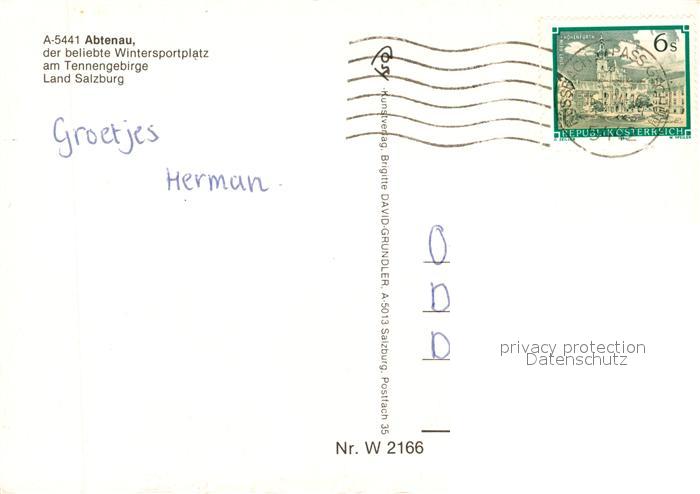 A-5441 Abtenau,
der beliebte Wintersportplatz
am Tennengebirge
Land Salzburg
Groetjes
Herman.
6s
REPUBLIK ÖSTERREICH
Kunstverlag, Brigitte DAVID-GRÜNDLER, A-5013 Salzburg, Postfach 35
O
D
D
privacy protection
Datenschutz
Nr. W 2166